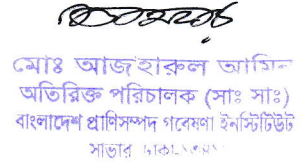 মোঃ আজহারুল আমিন
অতিরিক্ত পরিচালক (সাঃ সাঃ)
বাংলাদেশ প্রাণিসম্পদ গবেষণা ইনস্টিটিউট
সাভার